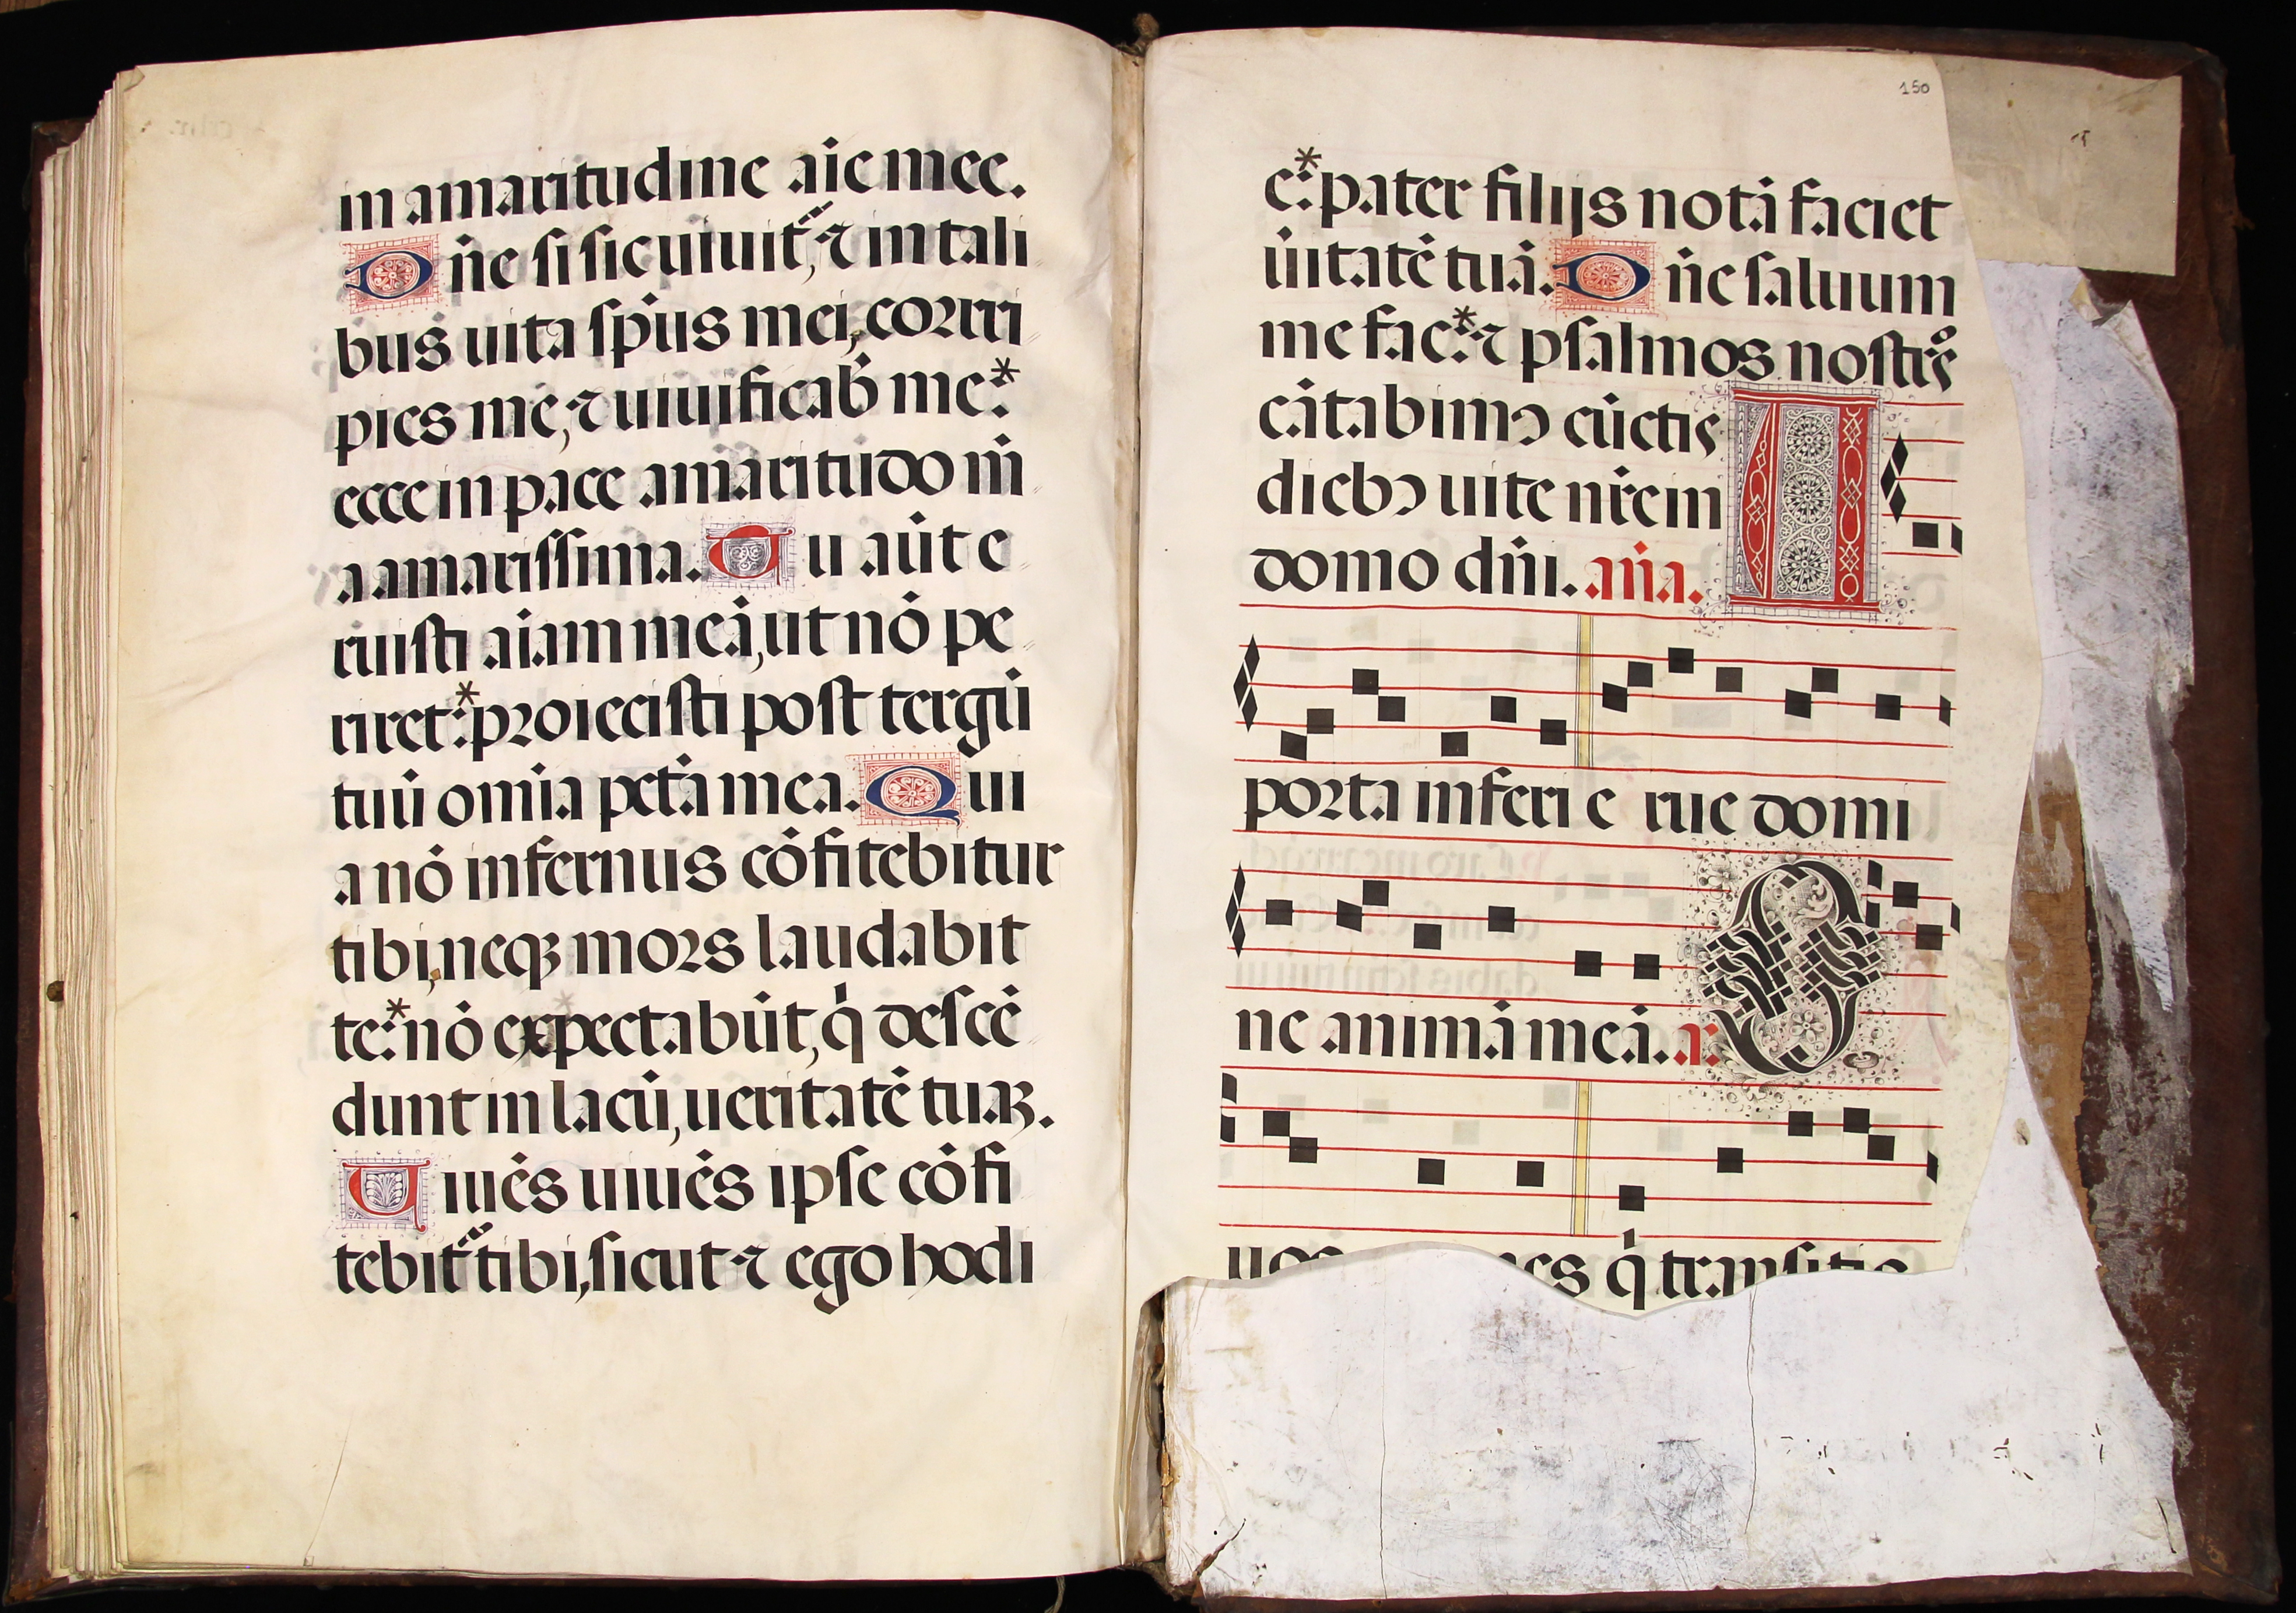 in amaritudine aīe mee.
Dn̄e si sic uiuit᷑, ⁊ in tali
bus uita sp̄us mei, corri
pies me, ⁊ uiuificab̄ me:*
ecce in pace amaritudo m̄
a amarissima. Tu aūt e
ruisti aīam meā, ut nō pe
riret:* proiecisti post tergū
tuū omīa pctā mea. Qui
a nō infernus cōfitebitur
tibi, neqꝫ mors laudabit
te:* nō expectabūt, q̇ descē
dunt in lacū, ueritatē tuaꝫ.
Viuēs uiuēs ipse cōfi
tebit᷑ tibi, sicut ⁊ ego hodi
150
e:* pater filijs notā faciet
ūitatē tuā. Dn̄e saluum
me fac:* ⁊ psalmos nostrꝭ
cātabimꝰ cūctis
diebꝰ uite nr̄e in
domo dn̄i. an̄a. A
porta inferi erue domi
ne animā meā. a. O
uos nes q̇ transitis